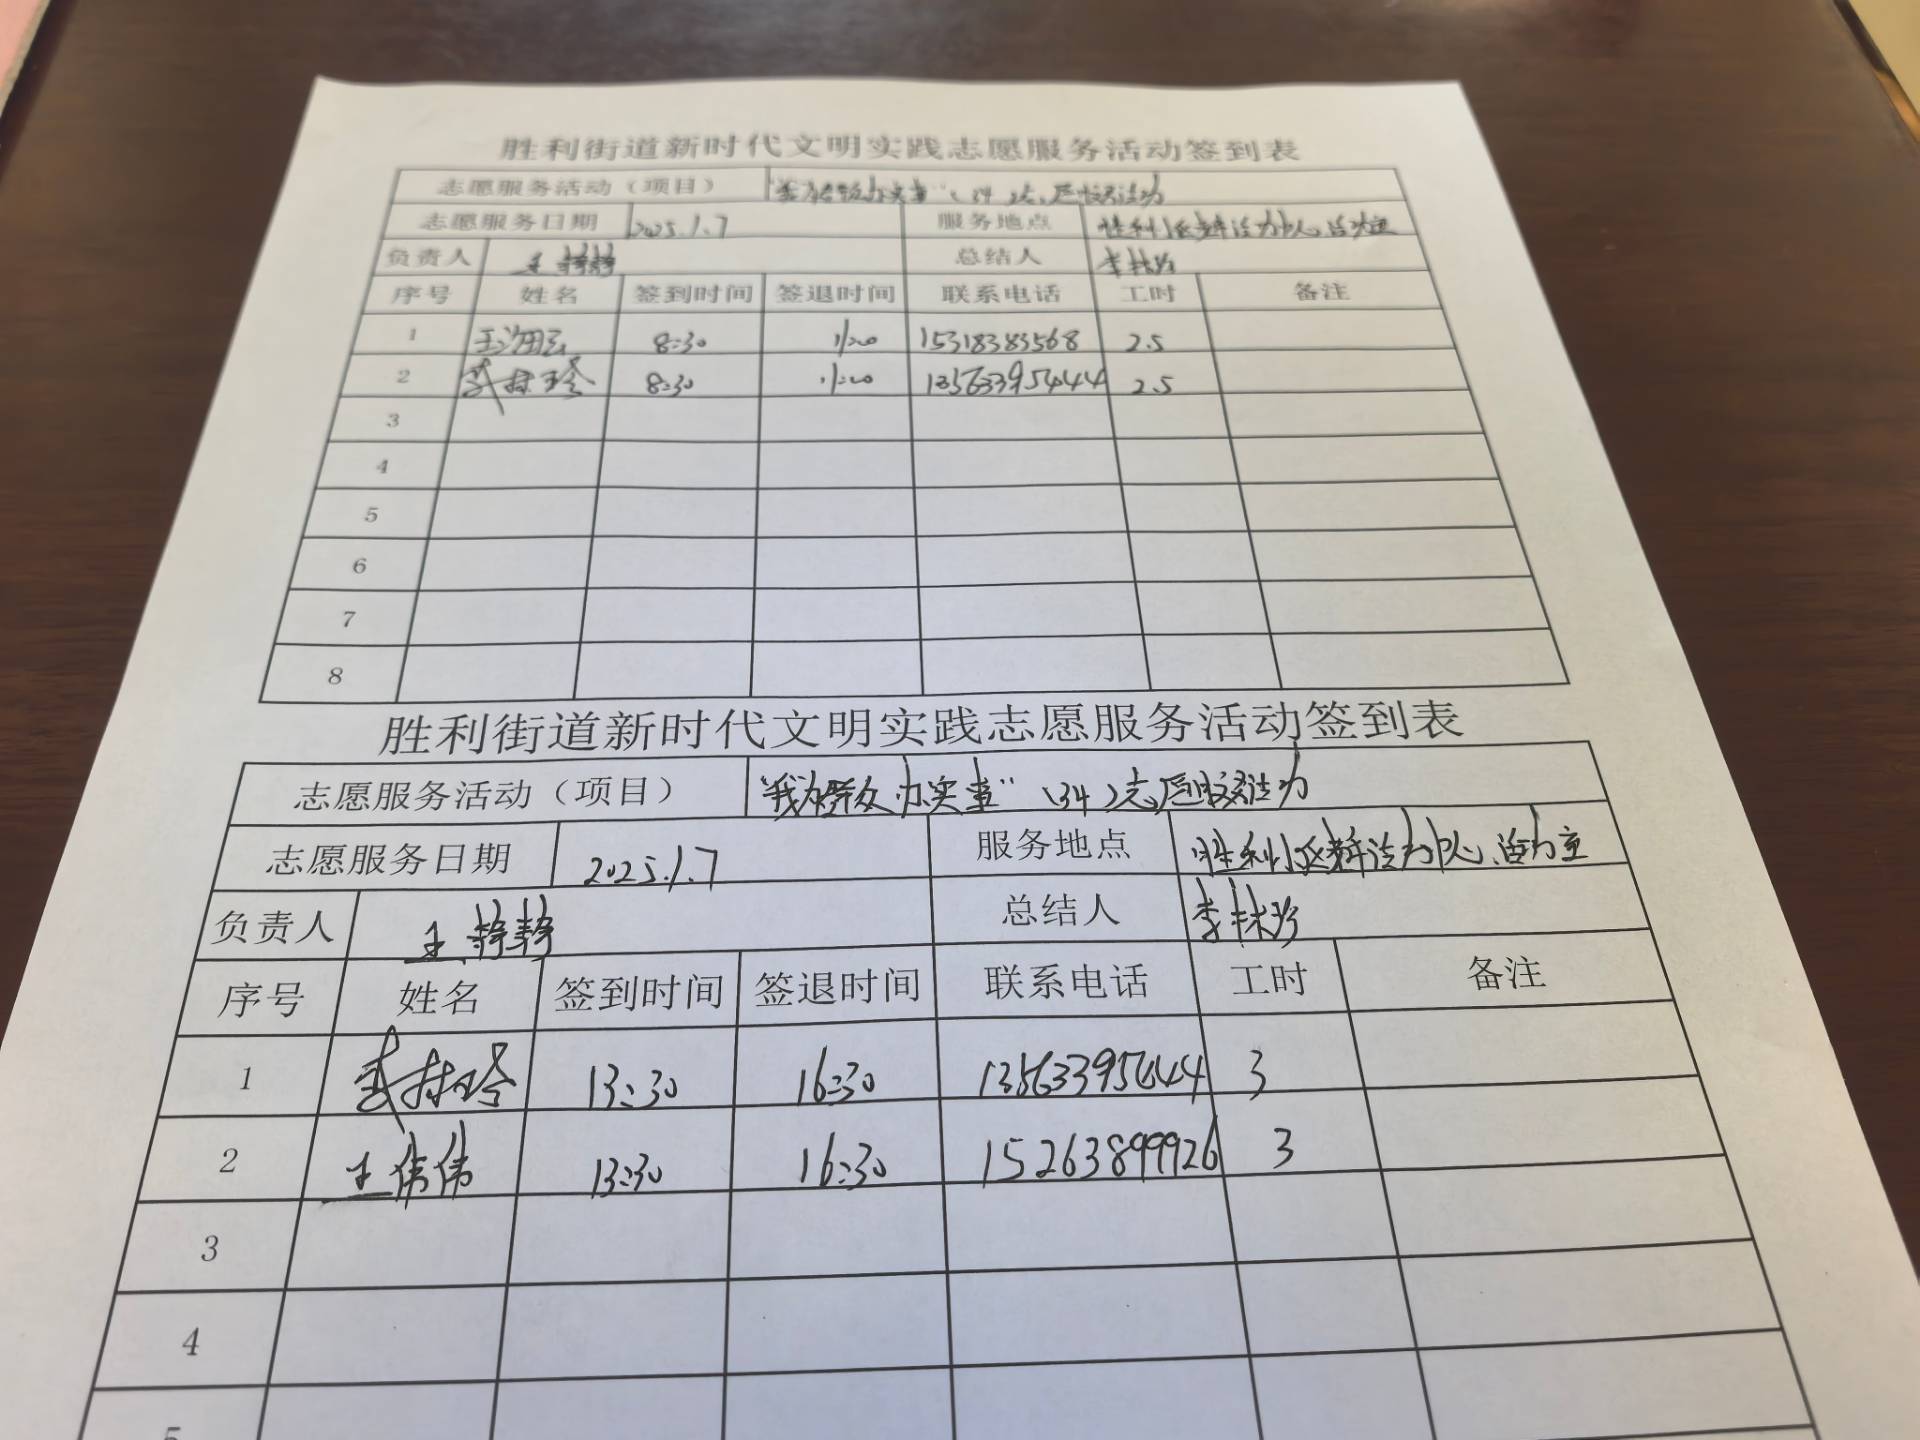 胜利街道新时代文明实践志愿服务活动签到表
志愿服务活动（项目） "我为群众办实事"（34）志愿服务活动
志愿服务日期 2025.1.7 服务地点 胜利社区群活动中心活动室
负责人 王静静 总结人 李林玲
序号 姓名 签到时间 签退时间 联系电话 工时 备注
1 8:30 11:00 15318383568 2.5
2 8:30 11:00 13563395444 2.5
3
4
5
6
7
8
胜利街道新时代文明实践志愿服务活动签到表
志愿服务活动（项目） "我为群众办实事"（34）志愿服务活动
志愿服务日期 2025.1.7 服务地点 胜利社区群活动中心活动室
负责人 王静静 总结人 李林玲
序号 姓名 签到时间 签退时间 联系电话 工时 备注
1 13:30 16:30 13563395444 3
2 王伟伟 13:30 16:30 15263899926 3
3
4
5